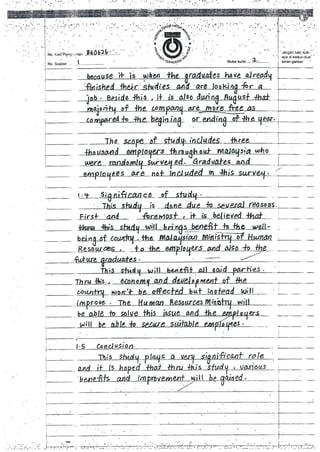 No. Kad Pengenalan 860626-
No. Soalan 1
Muka surat 2
Jangan tulis apa-apa di kedua-dua laman garisan
because it is when the graduates have already
finished their studies and are looking for a
job. Beside this, it is also during August that
majority of the company are more free as
compared to the begining or ending of the year.
The scope of study includes three
thousand employers throughout malaysia who
were randomly surveyed. Graduates and
employees are not included in this survey.
1.4 Significance of study.
This study is done due to several reasons.
First and foremost, it is believed that
thru this study will brings benefit to the well-
being of country, the Malaysian Ministry of Human
Resources, to the employers and also to the
future graduates.
This study will benefit all said parties.
Thru this, economy and development of the
country won't be effected but instead will
improve. The Human Resources Ministry will
be able to solve this issue and the employers
will be able to secure suitable employees.
1.5 Conclusion
This study plays a very significant role
and it is hoped that thru this study, various
benefits and improvement will be gained.